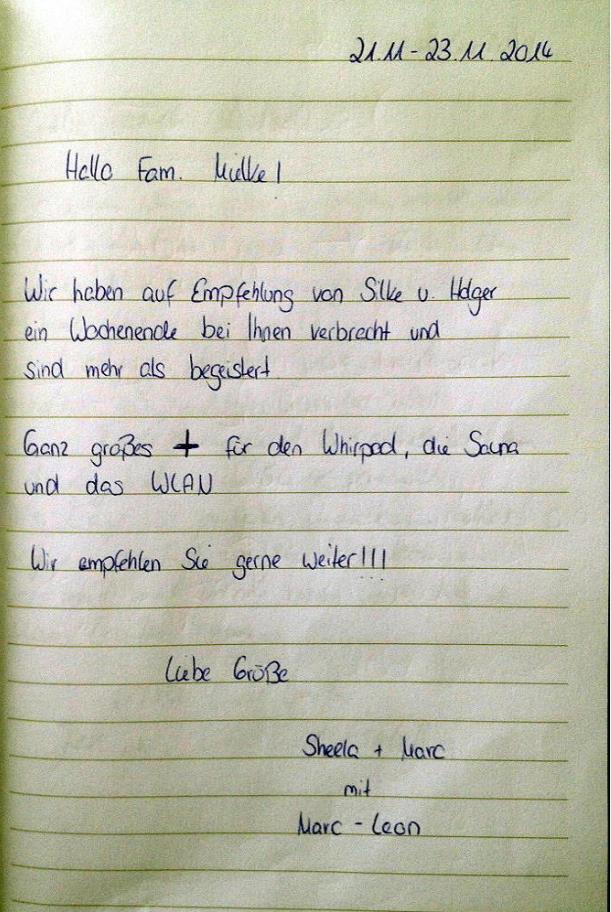 21.11 - 23.11.2014
Hallo Fam. Mielke!
Wir haben auf Empfehlung von Silke u. Holger
ein Wochenende bei Ihnen verbracht und
sind mehr als begeistert.
Ganz großes + für den Whirpool, die Sauna
und das WLAN
Wir empfehlen Sie gerne weiter!!!
Liebe Grüße
Sheela + Marc
mit
Marc - Leon